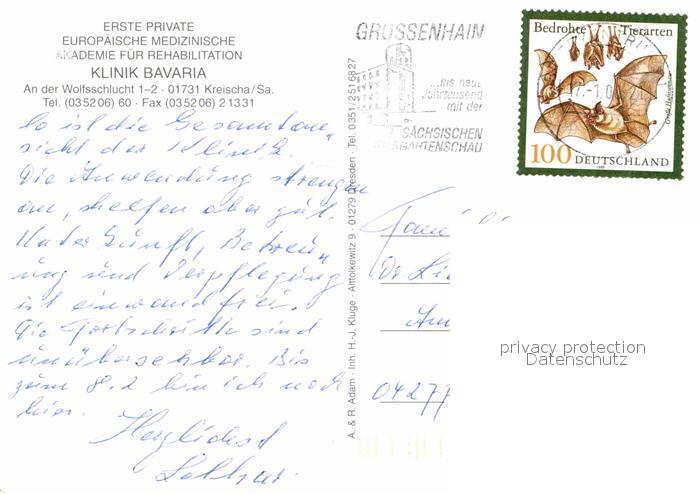 ERSTE PRIVATE
EUROPÄISCHE MEDIZINISCHE
AKADEMIE FÜR REHABILITATION
KLINIK BAVARIA
An der Wolfsschlucht 1–2 · 01731 Kreischa/Sa.
Tel. (035206) 60 · Fax (035206) 21331
So ist die Gesamtan„
sicht der Klinik.
Die Anwendung strengen
an, helfen aber gut.
Unterkunft, Betreu„
ung und Verpflegung
ist einwandfrei.
Die Fortschritte sind
unübersehbar. Bis
zum 8.2 bin ich noch
hier.
Herzlichst
Lothar.
A. & R. Adam · Inh. H.-J. Kluge · Alttolkewitz 9 · 01279 Dresden · Tel. 0351/2516827
GROSSENHAIN
...ins neue
Jahrtausend
mit der
SÄCHSISCHEN
GARTENSCHAU
Bedrohte Tierarten
Große Hufeisennase
100 DEUTSCHLAND
Fam
Dr. Li
Am
04277
privacy protection
Datenschutz